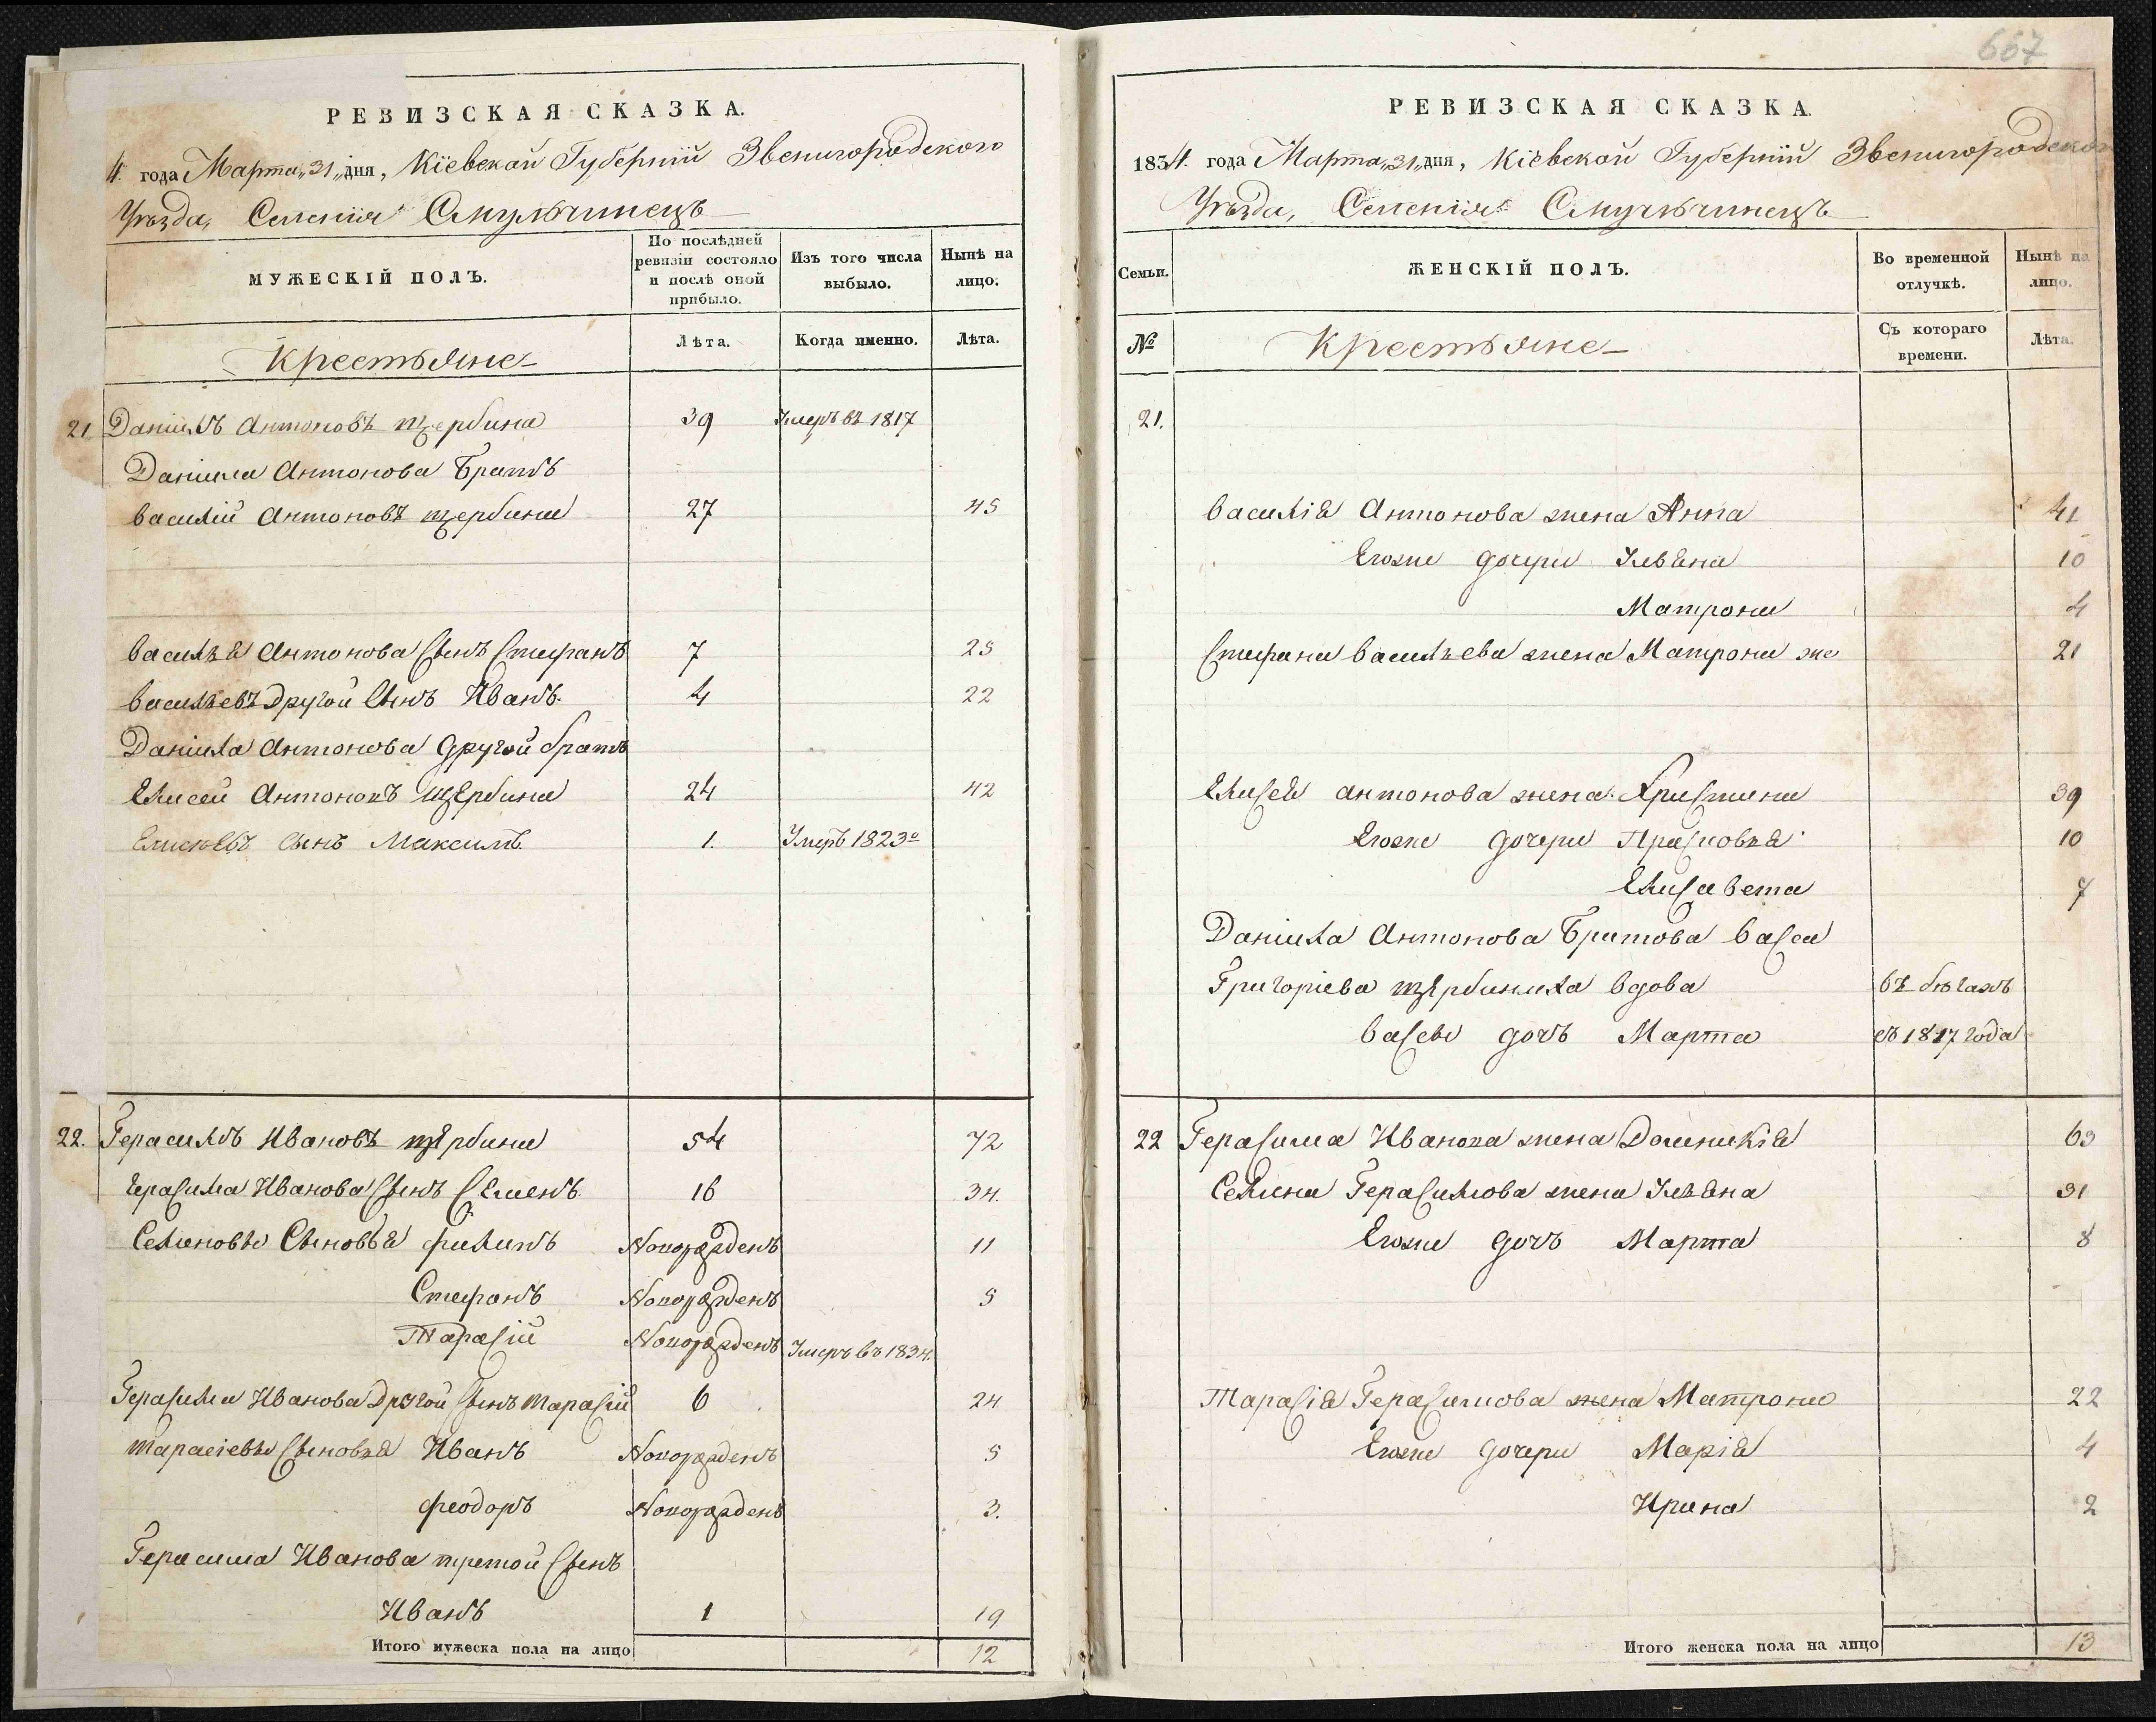 РЕВИЗСКАЯ СКАЗКА.
4. года Марта „31„ дня, Кіевской Губерніи Звенигородского
Уѣзда, Селенія Смульчинецъ
МУЖЕСКІЙ ПОЛЪ.
По послѣдней ревизіи состояло и послѣ оной прибыло.
Изъ того числа выбыло.
Нынѣ на лицо.
Крестьяне
Лѣта.
Когда именно.
Лѣта.
21 Даніилъ Антоновъ Щербина 39 Умеръ въ 1817
Даніила Антонова Братъ
Василій Антоновъ Щербина 27 45
Васильа Антонова Сынъ Стефанъ 7 25
Васильевъ Другой Сынъ Иванъ. 4 22
Даніила Антонова другой братъ
Елисей Антоновъ Щербина 24 42
Елисеевъ сынъ Максимъ. 1. Умеръ 1823го
22. Герасимъ Ивановъ Щербина 54 72
Герасима Иванова Сынъ Семенъ 16 34.
Семеновы Сыновья Филипъ Новорожденъ 11
Стефанъ Новорожденъ 5
Тарасій Новорожденъ Умеръ въ 1834.
Герасима Иванова Другой Сынъ Тарасій 6 24
Тарасіевы Сыновья Иванъ Новорожденъ 5
Феодоръ Новорожденъ 3.
Герасима Иванова третой Сынъ
Иванъ 1 19
Итого мужеска пола на лицо 12
667
РЕВИЗСКАЯ СКАЗКА.
1834. года Марта „31„ дня, Кіевской Губерніи Звенигородского
Уѣзда, Селенія Смульчинецъ
Семьи.
ЖЕНСКІЙ ПОЛЪ.
Во временной отлучкѣ.
Нынѣ на лицо.
№
Крестьяне
Съ котораго времени.
Лѣта.
21.
Василія Антонова жена Анна 41
Егоже дочери Ульяна 10
Матрона 4
Стефана Васильева жена Матрона же 21
Елисея Антонова жена Христина 39
Егоже дочери Прасковья 10
Елисавета 7
Даніила Антонова Братова Васса
Григоріева Щербиниха вдова въ бѣгахъ
Вассы дочь Марта съ 1817 года
22 Герасима Иванова жена Доминикія 63
Семена Герасимова жена Ульяна 31
Егоже дочь Марта 8
Тарасія Герасимова жена Матрона 22
Егоже дочери Марія 4
Ирина 2
Итого женска пола на лицо 13